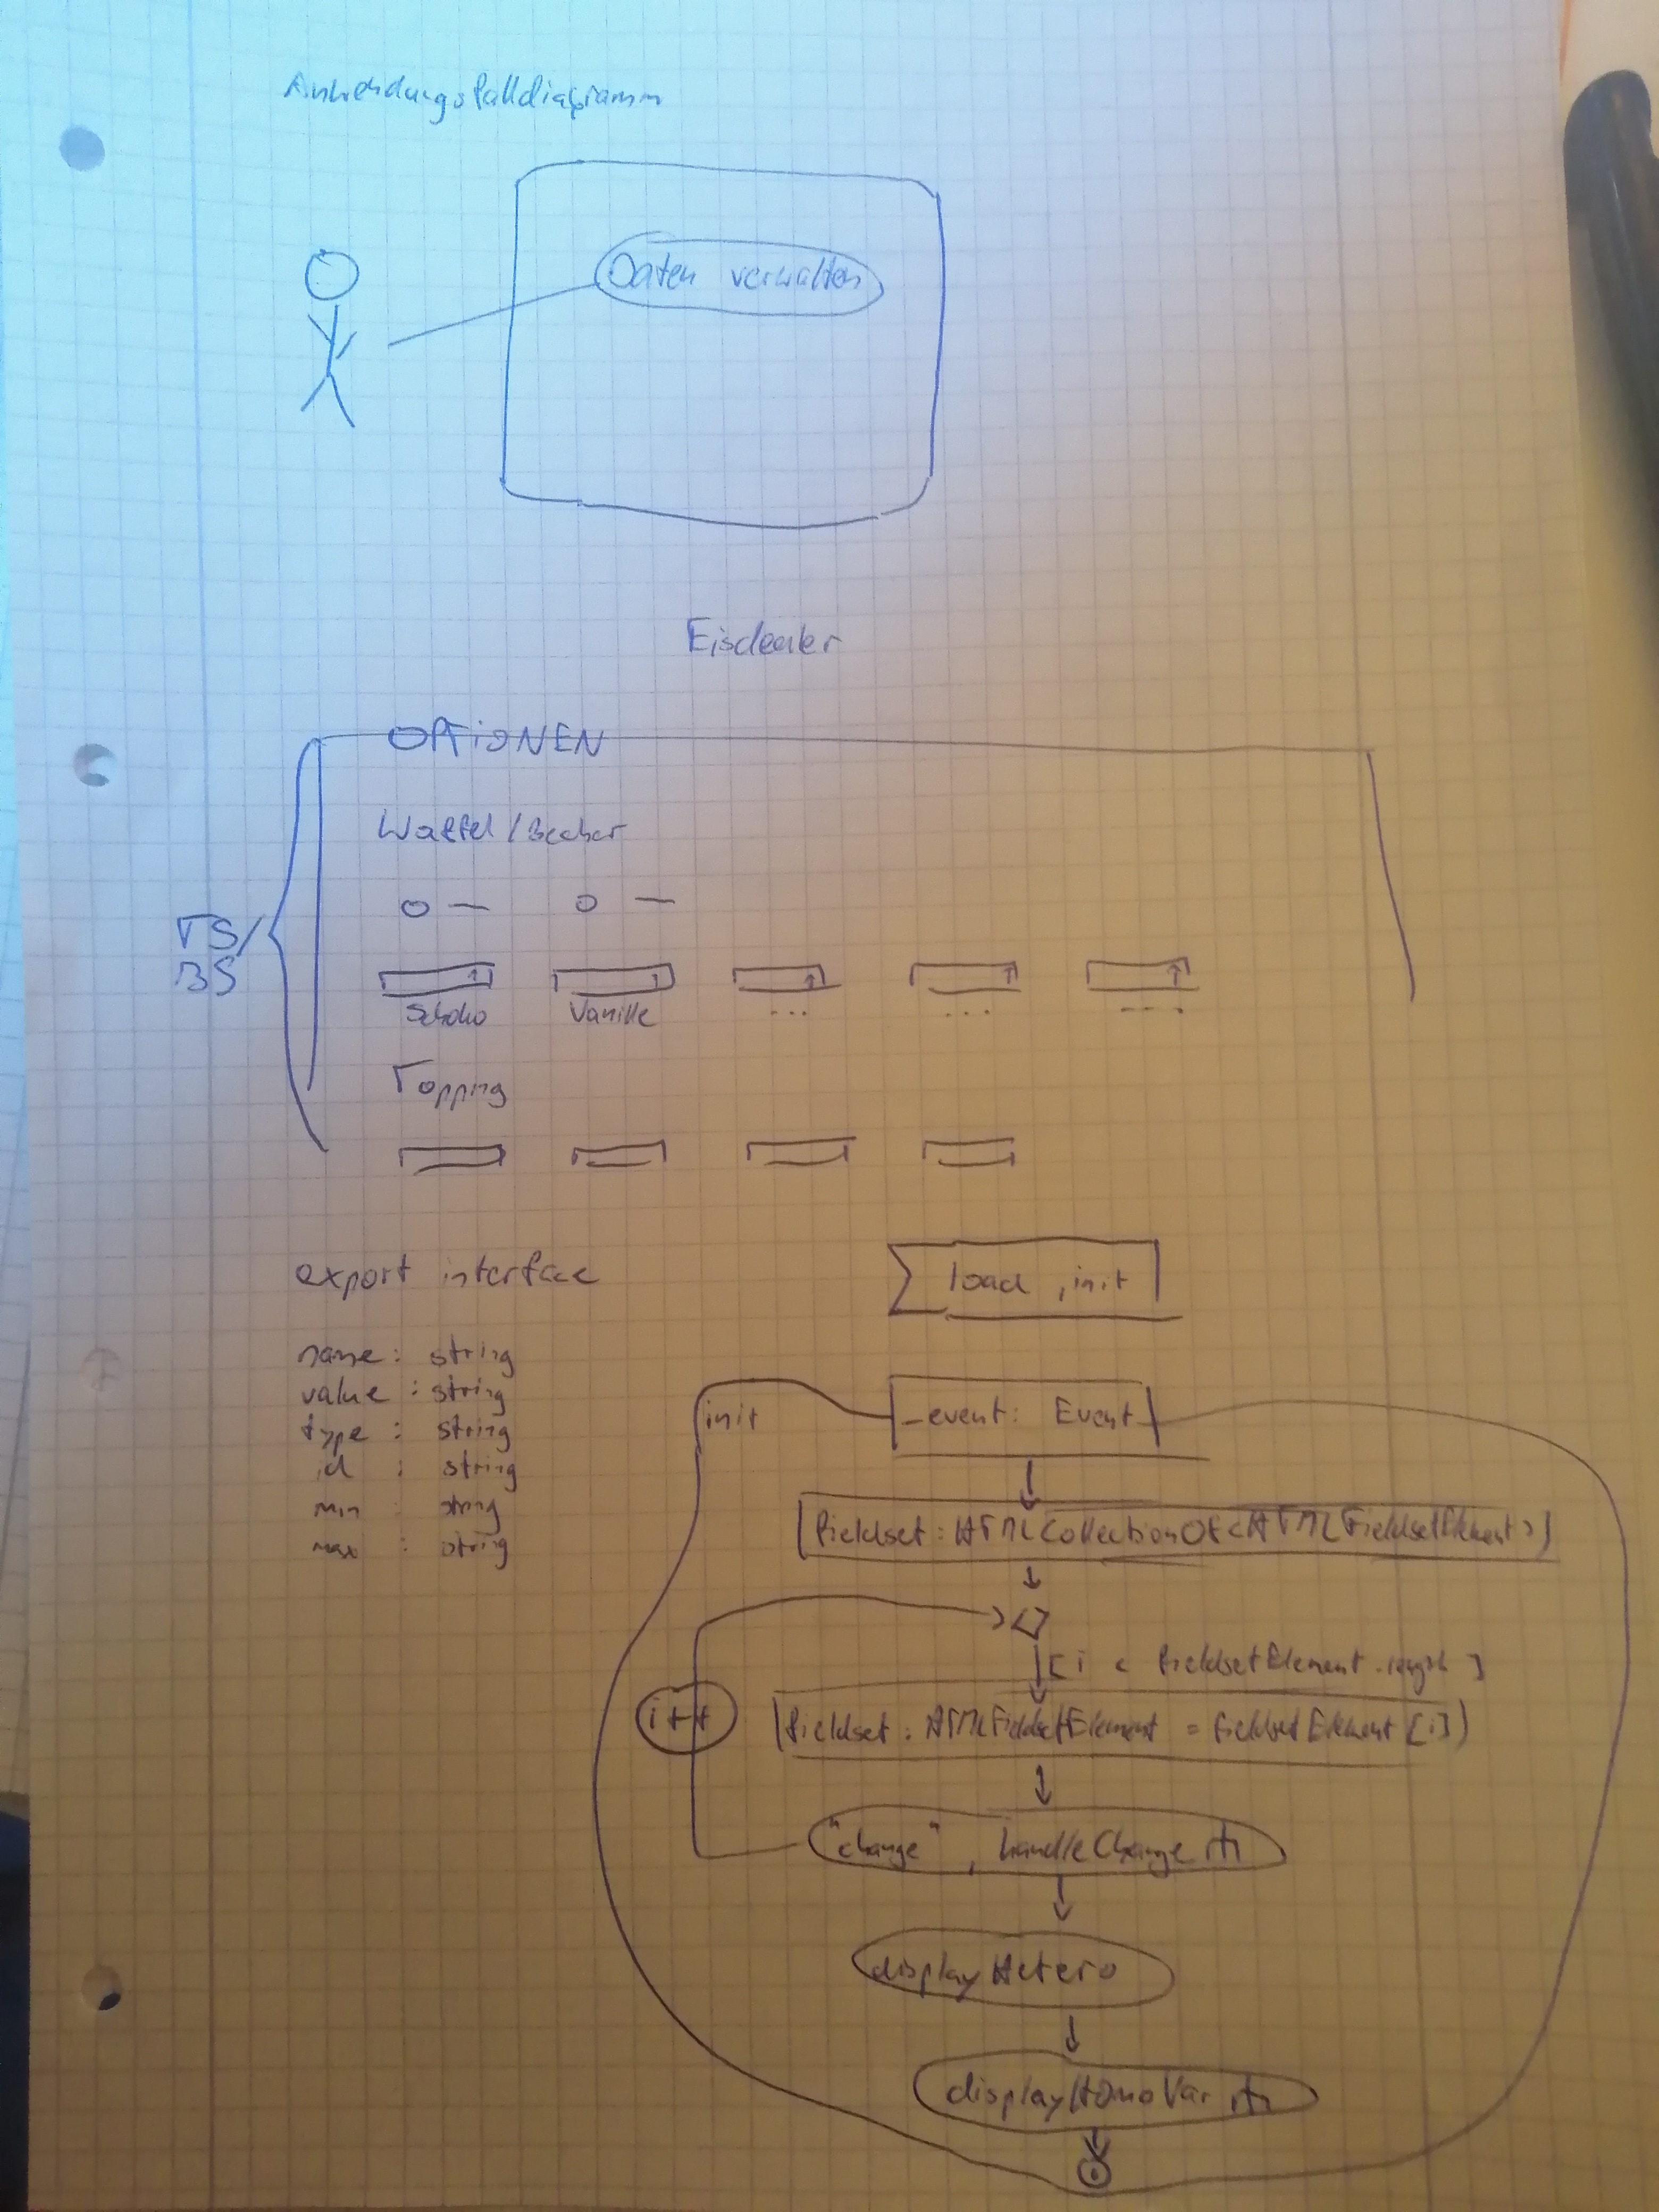 Anwendungsfalldiagramm
Daten verwalten
Eisdealer
OPTIONEN
Waffel / Becher
TS/
BS
Schoko Vanille ... ... ...
Topping
export interface
name : string
value : string
type : string
id : string
min : string
max : string
load , init
init
_event: Event
fieldset : HTMLCollectionOf<HTMLFieldsetElement>
[i < fieldsetElement.length]
i++
fieldset : HTMLFieldsetElement = fieldsetElement [i]
"change" , handleChange
displayHetero
displayHomoVar